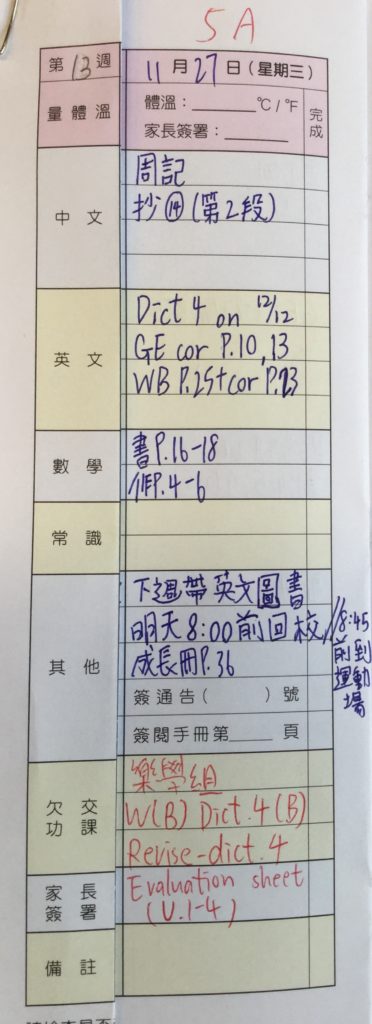 5A
第13週 11月27日(星期三)
量體溫 體溫:______℃/℉ 完成
家長簽署:______
中文 周記
抄⑭(第2段)
英文 Dict 4 on 12/12
GE cor P.10,13
WB P.25+cor P.23
數學 書P.16-18
作P.4-6
常識
其他 下週帶英文圖書
明天8:00前回校//8:45前到運動場
成長冊P.36
簽通告( )號
簽閱手冊第____頁
欠交功課 樂學組
W(B) Dict.4(B)
Revise-dict.4
家長簽署 Evaluation sheet
(U.1-4)
備註